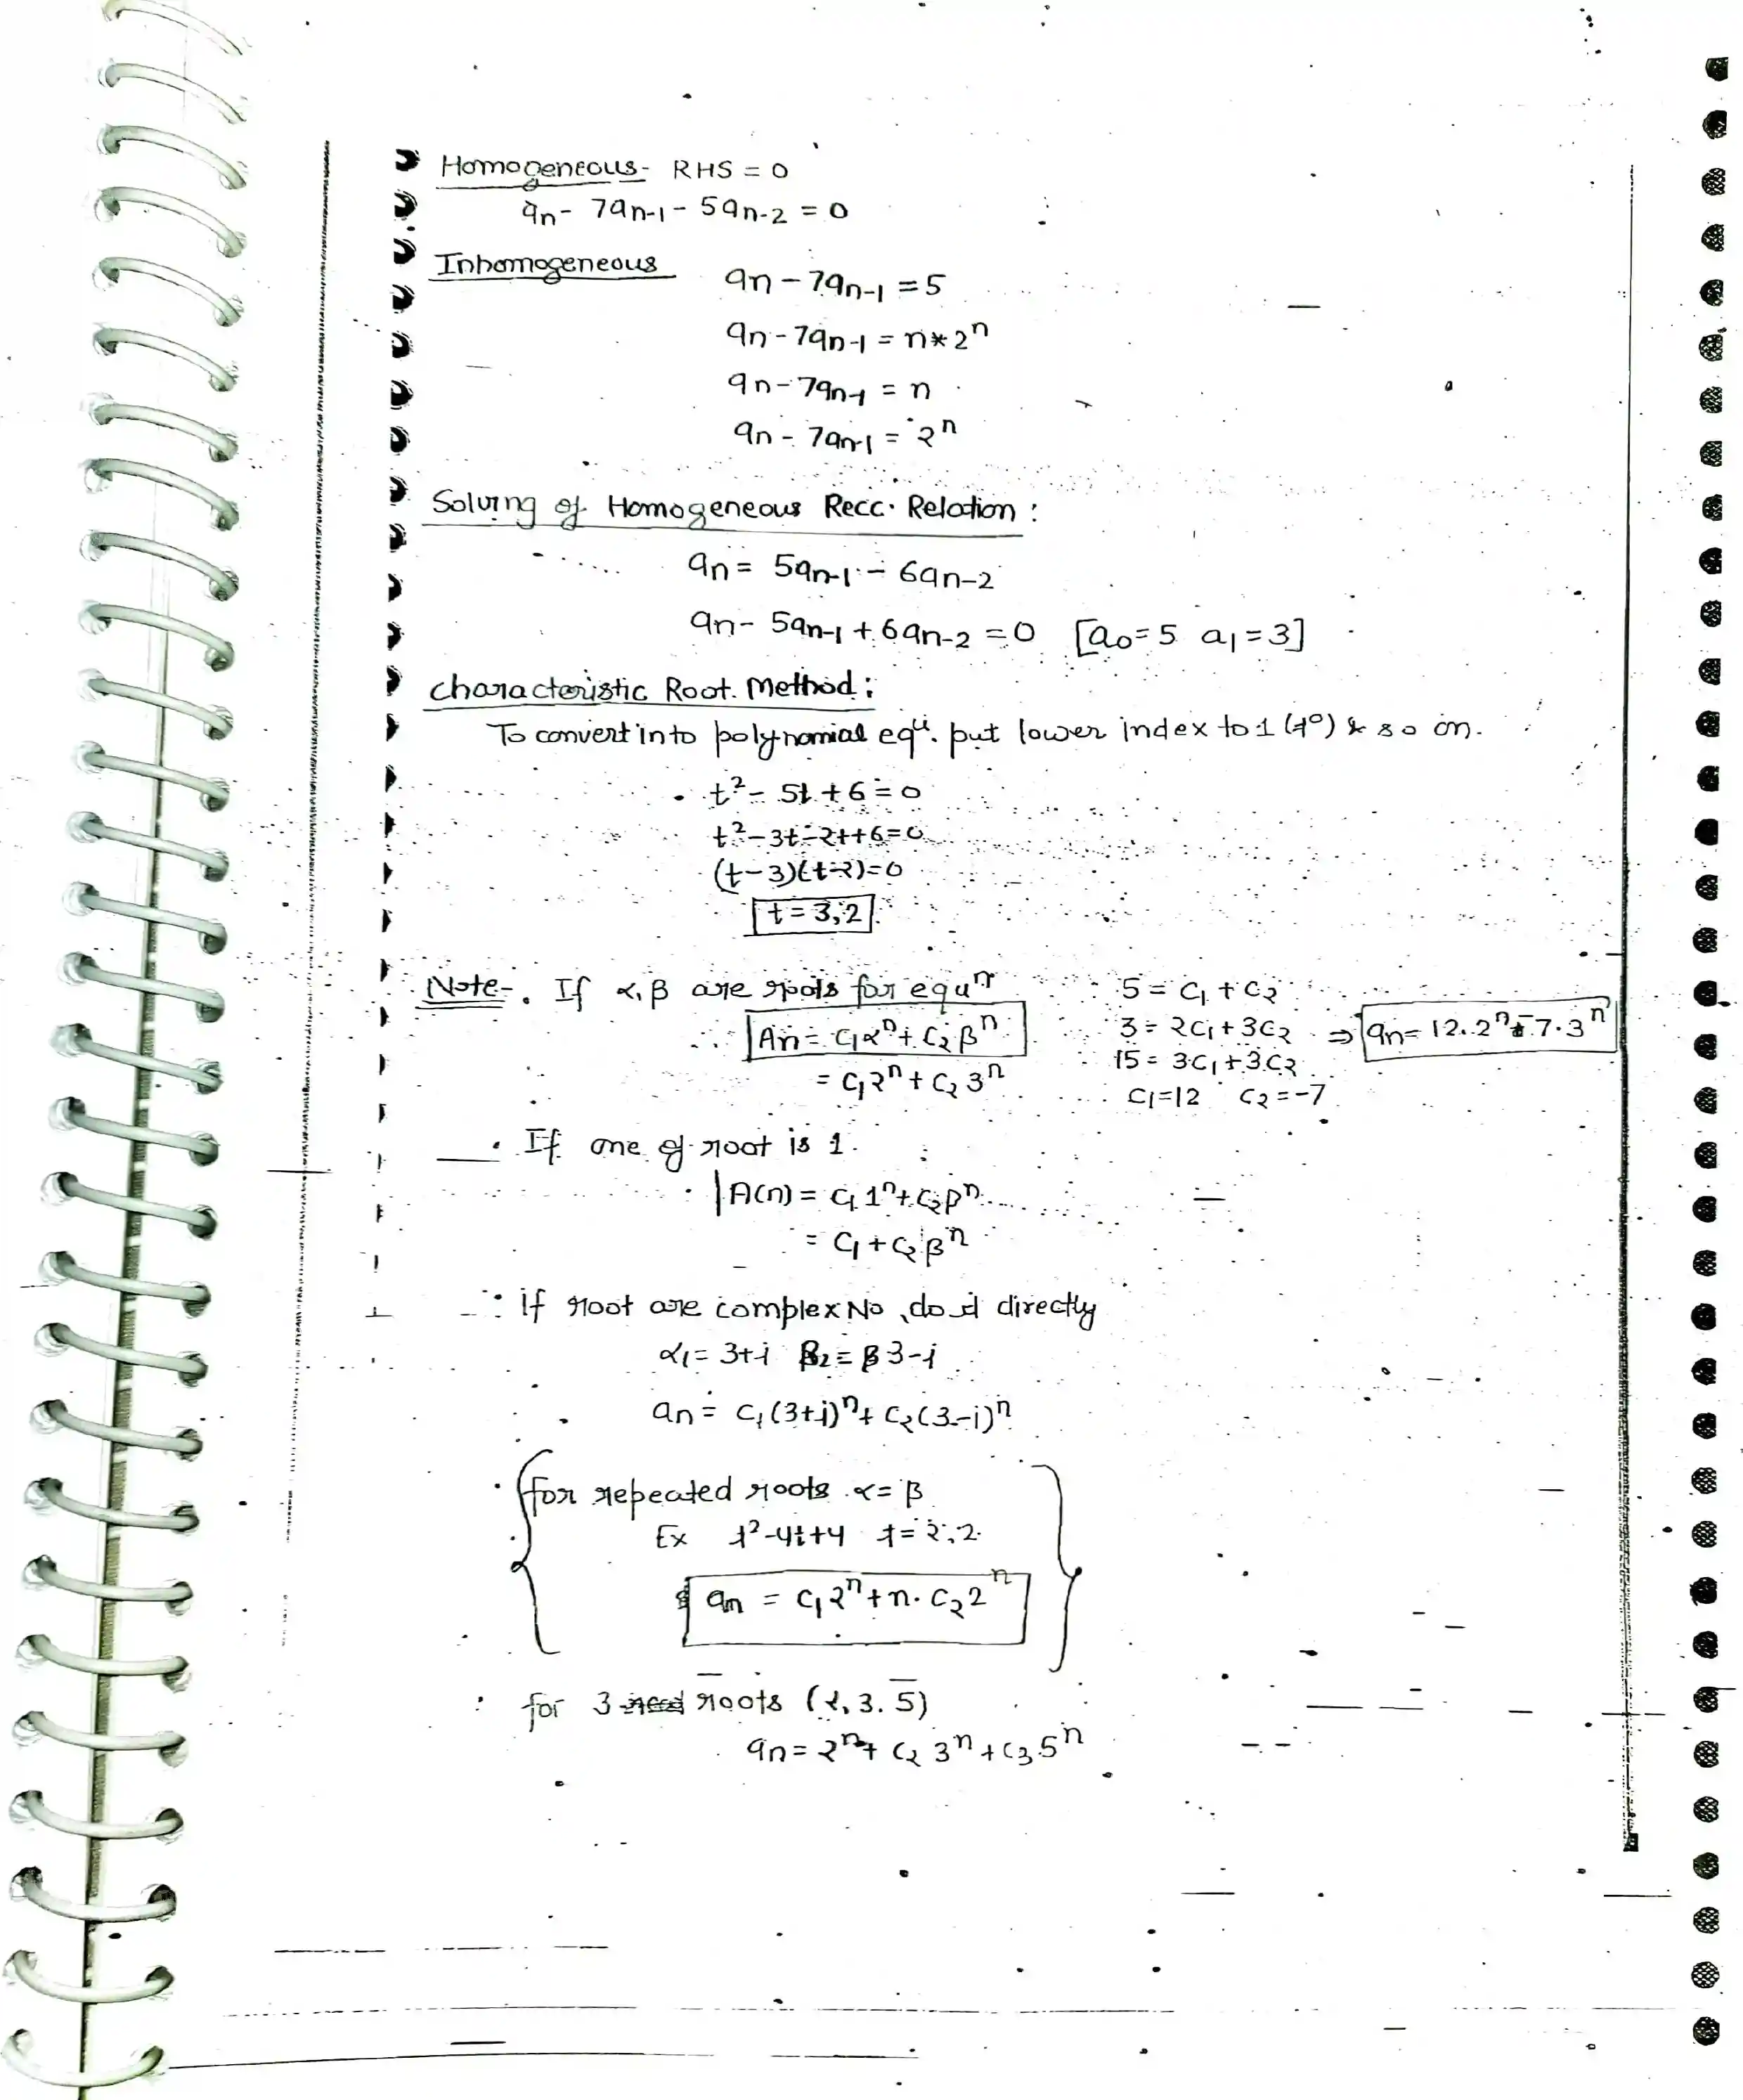 Homogeneous- RHS = 0
an - 7an-1 - 5an-2 = 0
Inhomogeneous
an - 7an-1 = 5
an - 7an-1 = n*2^n
an - 7an-1 = n
an - 7an-1 = 2^n
Solving of Homogeneous Recc. Relation :
an = 5an-1 - 6an-2
an - 5an-1 + 6an-2 = 0 [a0=5 a1=3]
characteristic Root. Method :
To convert into polynomial equ. put lower index to 1 (t^0) & so on.
t^2 - 5t + 6 = 0
t^2 - 3t - 2t + 6 = 0
(t-3)(t-2)=0
t = 3, 2
Note- . If α, β are roots for equ^n
∴ An = C1α^n + C2β^n
= C1 2^n + C2 3^n
5 = C1 + C2
3 = 2C1 + 3C2 ⇒ an = 12.2^n - 7.3^n
15 = 3C1 + 3C2
C1=12 C2=-7
. If one of root is 1.
A(n) = C1 1^n + C2 β^n
= C1 + C2 β^n
. if root are complex No, do it directly
α1 = 3+i β2 = 3-i
an = C1(3+i)^n + C2(3-i)^n
. for repeated roots α = β
Ex t^2-4t+4 t = 2, 2
an = C1 2^n + n. C2 2^n
: for 3 roots (2, 3. 5)
an = 2^n + C2 3^n + C3 5^n